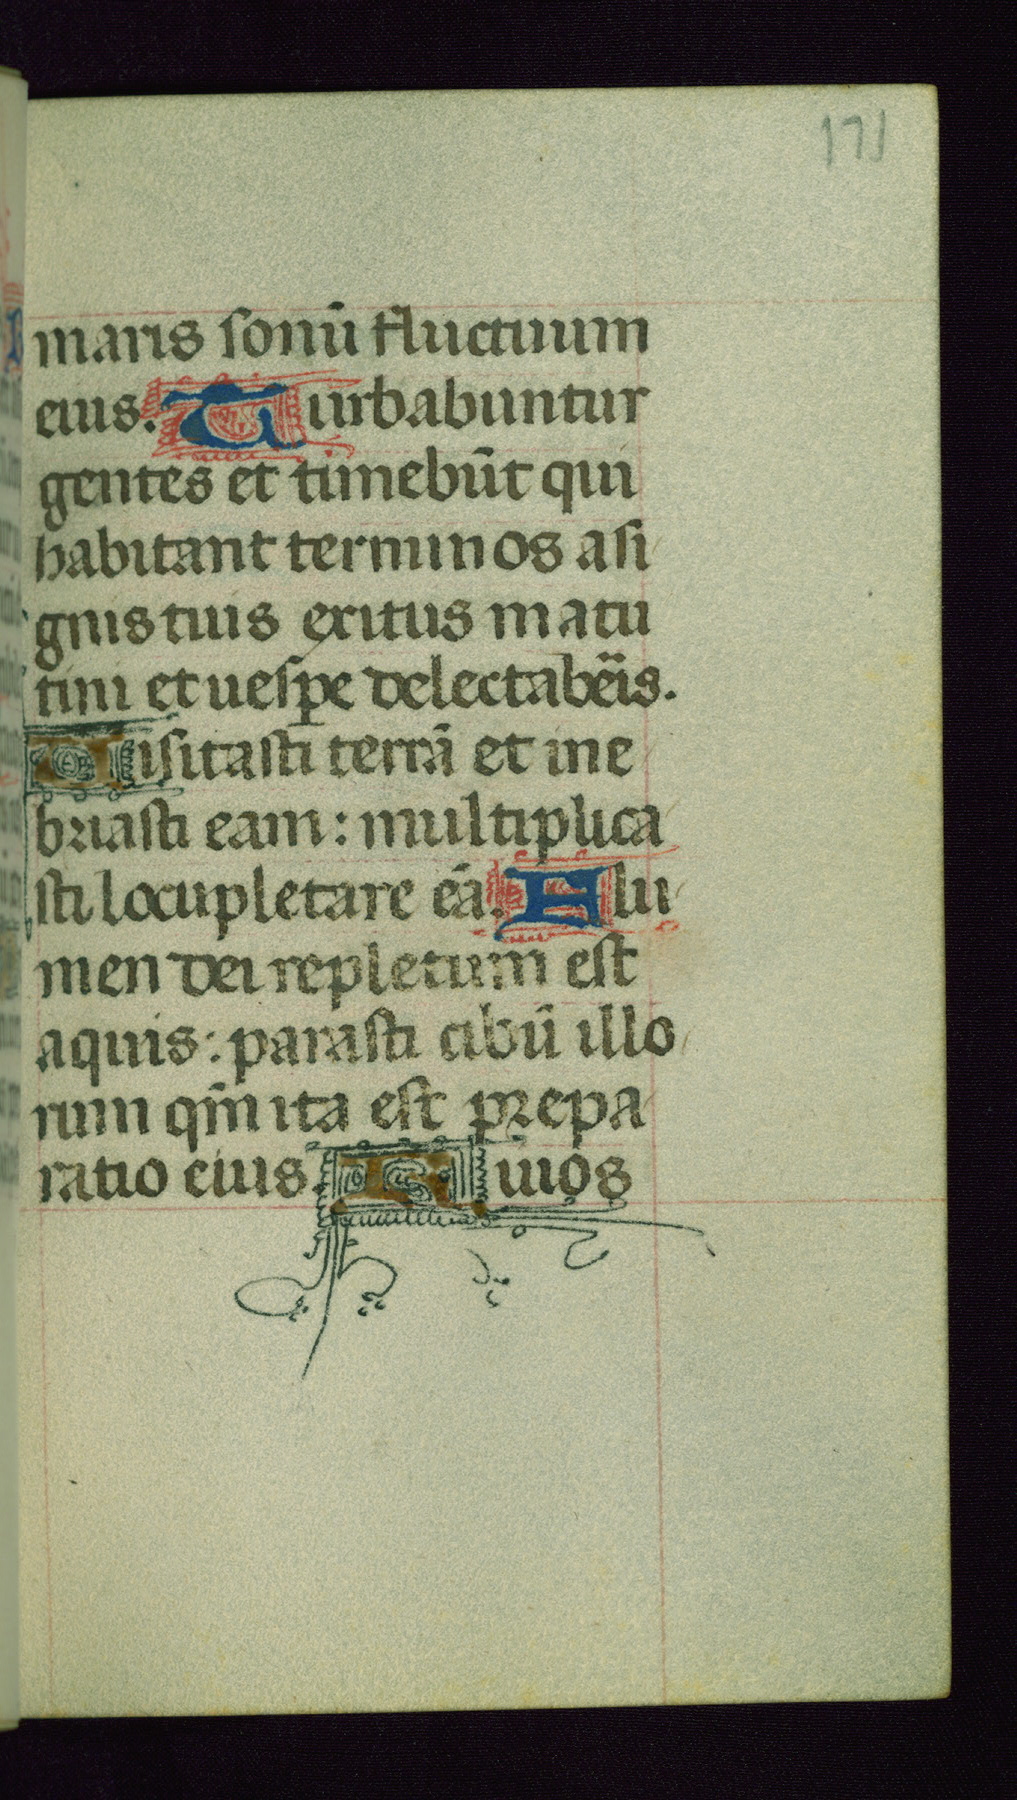 171
maris sonū fluctuum
eius. Turbabuntur
gentes et timebūt qui
habitant terminos asi
gnis tuis exitus matu
tini et uespe delectabēis.
Uisitasti terrā et ine
briasti eam: multiplica
sti locupletare eā. Flu
men dei repletum est
aquis: parasti cibū illo
rum qm̄ ita est prepa
ratio eius. Riuos